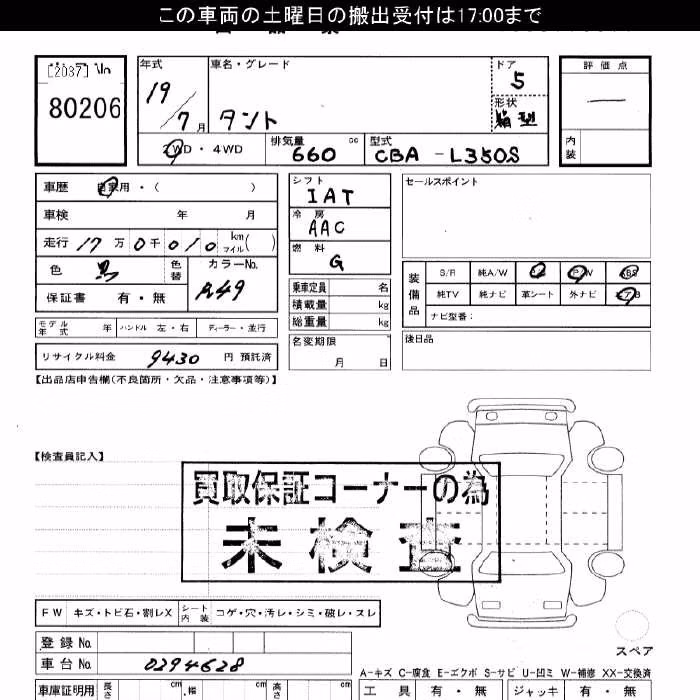 この車両の土曜日の搬出受付は17:00まで
[2037]
80206
年式 車名・グレード ドア 評価点
19/7月 タント 5 —
形状 箱型
2WD・4WD 排気量 660 cc 型式 CBA-L350S 内装
車歴 自家用・( )
車検 年 月
走行 17万0千010 km マイル( )
色 黒 色替 カラーNo. A49
保証書 有・無
モデル年式 年 ハンドル 左・右 ディーラー・並行
リサイクル料金 9430 円 預託済
シフト IAT
冷房 AAC
燃料 G
乗車定員 名
積載量 kg
総重量 kg
名変期限 月 日
セールスポイント
装備品 S/R 純A/W P/S P/W ABS
純TV 純ナビ 革シート 外ナビ エアB
ナビ型番:
後日品
【出品店申告欄(不良箇所・欠品・注意事項等)】
【検査員記入】
買取保証コーナーの為
未検査
FW キズ・トビ石・割レX シート内装 コゲ・穴・汚レ・シミ・破レ・スレ
スペア
登録No.
車台No. 0294628
A-キズ C-腐食 E-エクボ S-サビ U-凹ミ W-補修 XX-交換済
車庫証明用 長さ cm 幅 cm 高さ cm 工具 有・無 ジャッキ 有・無